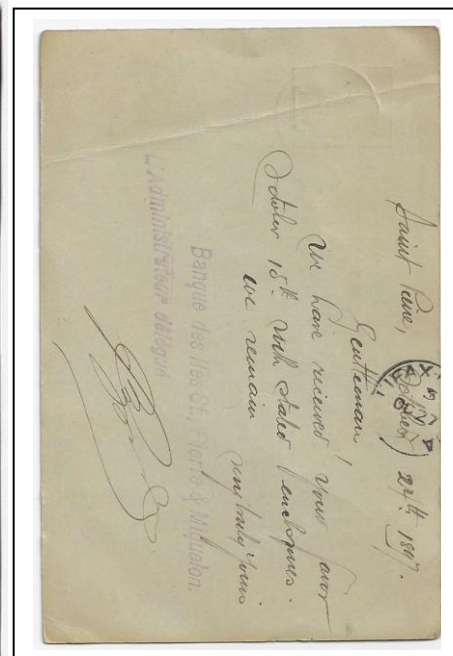 Saint Pierre, October 24th 1897.
Gentleman!
We have received your favor
October 15th with stated enclosures.
we remain
very truly yours
Banque des Iles St. Pierre & Miquelon.
L'Administrateur délégué